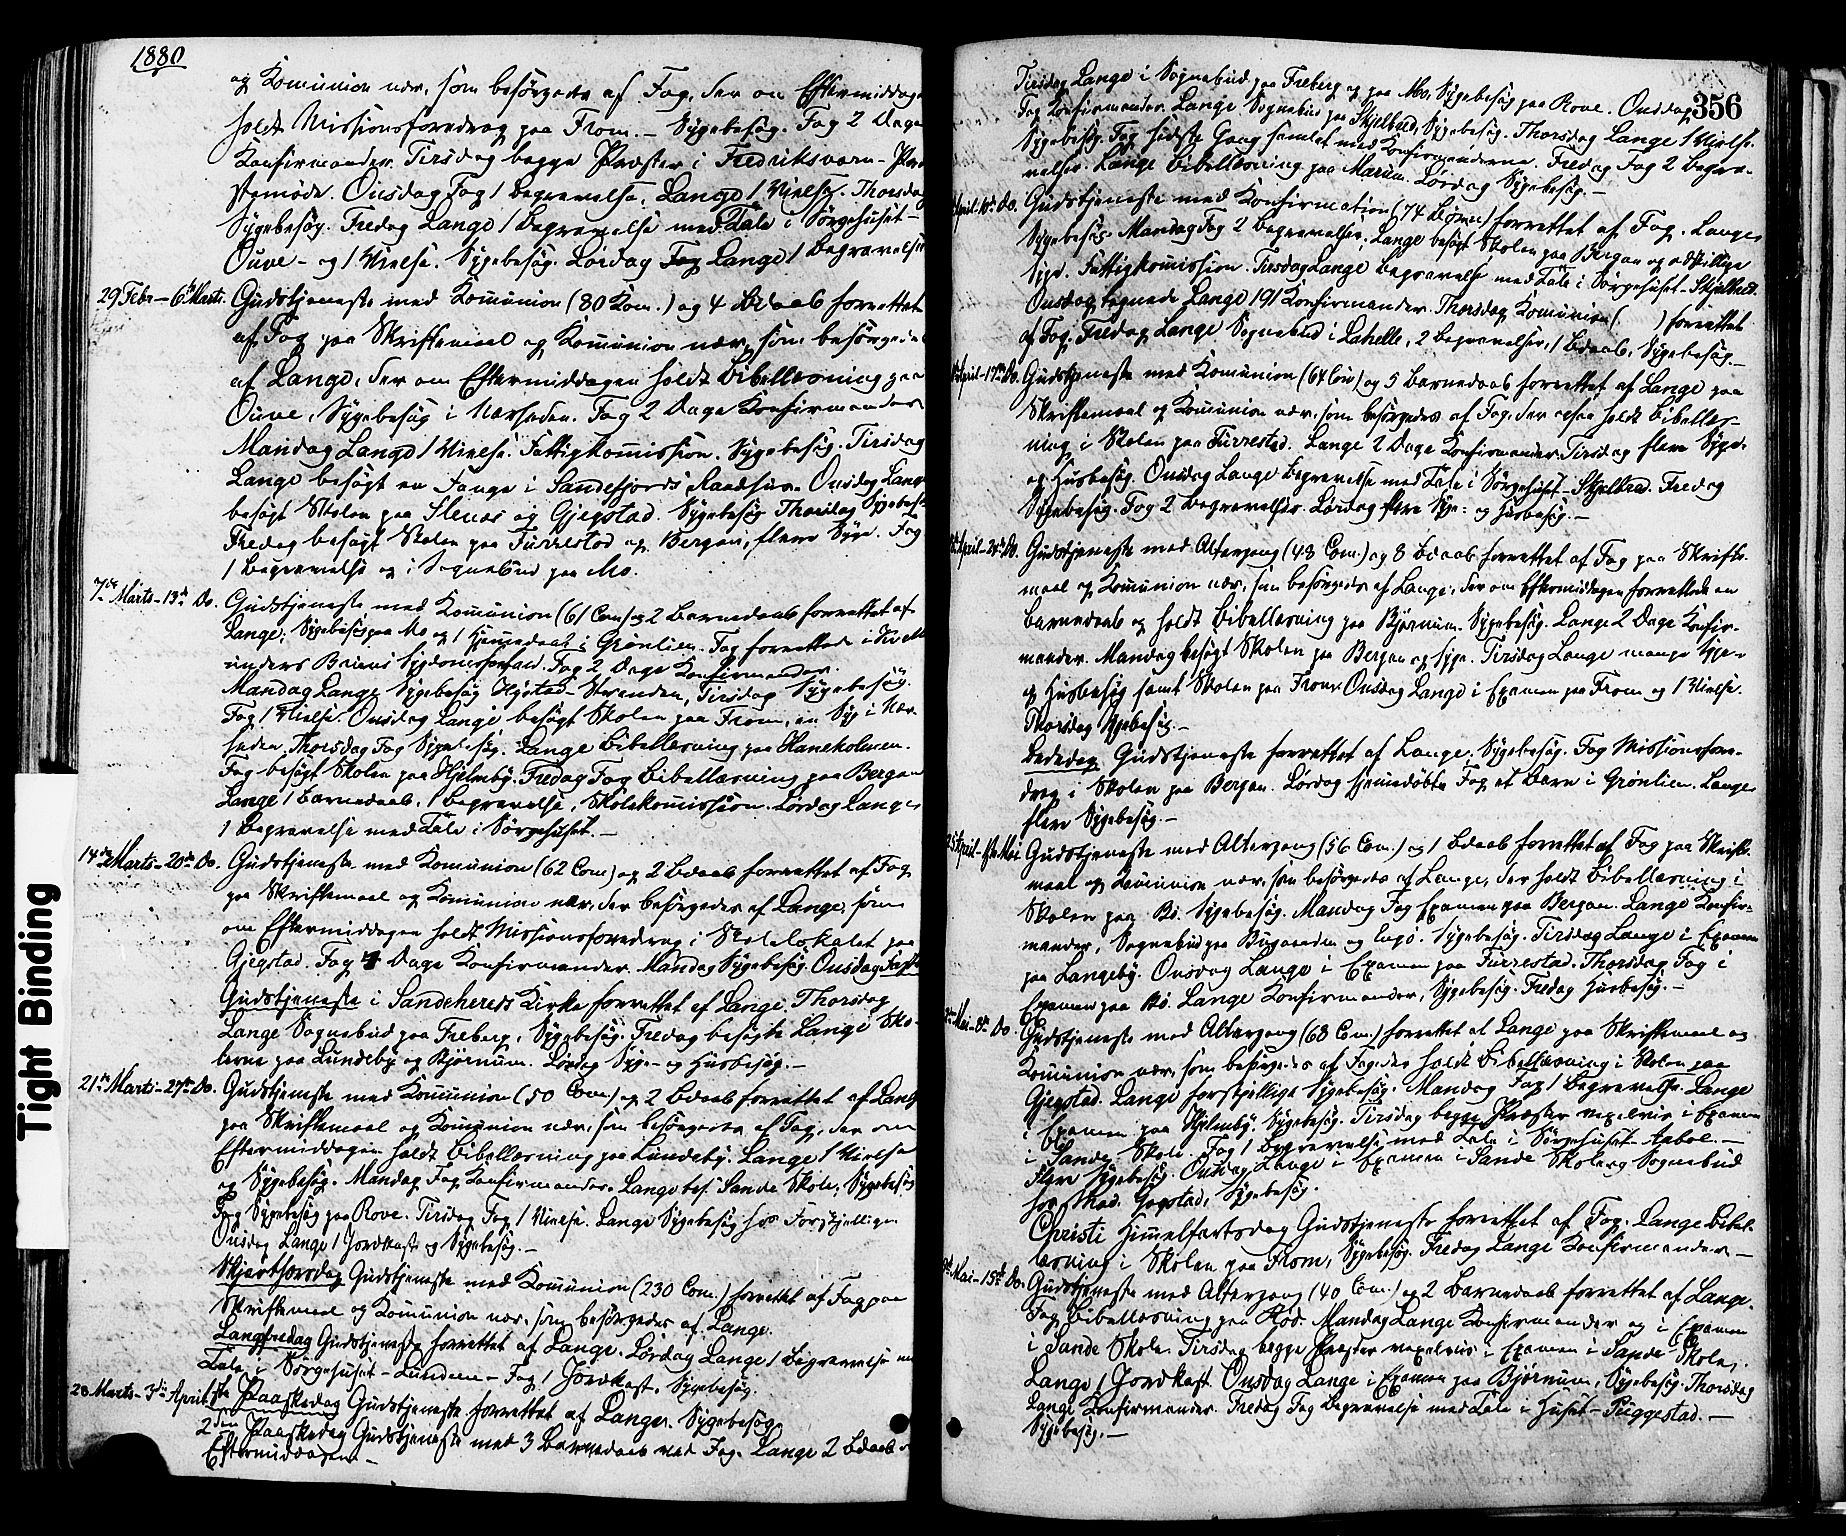 1880
og Komunion nær, som besörgedes af Fog, der om Eftermiddagen
holdt Missionsforedrag paa From. — Sygebesög. Fog 2 Dage
Konfirmander. Tirsdag begge Præster i Fredriksværn – Præ
stemöde. Onsdag Fog 1 Begravelse, Lange 1 Vielse. Thorsdag
Sygebesög. Fredag Lange 1 Begravelse med Tale i Sörgehuset –
Ouve – og 1 Vielse. Sygebesög. Lördag Fog Lange 1 Begravelse
29 Febr – 6te Marts. Gudstjeneste med Komunion (80 Kom.) og 4 Bdaab forrettet
af Fog paa Skriftemaal og Komunion nær, som besörgedes
af Lange, der om Eftermiddagen holdt Bibellæsning paa
Ouve, Sygebesög i Nærheden. Fog 2 Dage Konfirmander
Mandag Lange 1 Vielse. Fattigkommission. Sygebesög. Tirsdag
Lange besögt en Fange i Sandefjords Raadhus. Onsdag Lange
besögt Skolen paa Stenaas og Gjegstad. Sygebesög Thorsdag Sygebesög.
Fredag besögt Skolen paa Furrestad og Bergan, flere Syge. Fog
1 Begravelse og i Sognebud paa Mo.
7de Marts – 13de Do. Gudstjeneste med Komunion (61 Com) og 2 Barnedaab forrettet af
Lange; Sygebesög paa Mo og 1 Hjemmedaab i Grönlien. Fog forrettede i
Fog 2 Dage Konfirmander.
Mandag Lange Sygebesög Hystad – Stranden, Tirsdag Sygebesög.
Fog 1 Vielse. Onsdag Lange besögt Skolen paa From, en Syg i Nær
heden. Thorsdag Fog Sygebesög. Lange Bibellæsning paa Haneholmen.
Fog besögt Skolen paa Hjelmby. Fredag Fog Bibellæsning paa Bergan
Lange 1 Barnedaab, 1 Begravelse, Skolekommission. Lördag Lange
1 Begravelse med Tale i Sörgehuset. —
14de Marts – 20de Do. Gudstjeneste med Komunion (62 Com) og 2 Bdaab forrettet af Fog
paa Skriftemaal og Komunion nær, der besörgedes af Lange, som
om Eftermiddagen holdt Missionsforedrag i Skolelokalet paa
Gjegstad. Fog 4 Dage Konfirmander. Mandag Sygebesög. Onsdag Faste
Gudstjeneste i Sandeherreds Kirke forrettet af Lange. Thorsdag
Lange Sognebud paa Freberg, Sygebesög. Fredag besögte Lange Sko-
lerne paa Lundeby og Bjørnum. Lördag Syge- og Husbesög. —
21de Marts – 27de Do. Gudstjeneste med Komunion (50 Com.) og 2 Bdaab forrettet af Lange
paa Skriftemaal og Komunion nær, som besörgedes af Fog, der om
Eftermiddagen holdt Bibellæsning paa Lundeby. Lange 1 Vielse
og Sygebesög. Mandag Fog Konfirmander. Lange bes. Sande Skole, Sygebesög
Fog Sygebesög paa Rove. Tirsdag Fog 1 Vielse. Lange Sygebesög hos Forskjellige
Onsdag Lange 1 Jordkast og Sygebesög. —
Skjærthorsdag Gudstjeneste med Komunion (230 Com.) forrettet af Fog paa
Skriftemaal og Komunion nær, som besörgedes af Lange.
Langfredag Gudstjeneste forrettet af Lange. Lördag Lange 1 Begravelse m
Tale i Sörgehuset – Lunden – Fog 1 Jordkast, Sygebesög.
28 Marts – 3die April 1ste Paaskedag Gudstjeneste forrettet af Lange. Sygebesög.
2den Paaskedag Gudstjeneste med 3 Barnedaab ved Fog. Lange 2 Bdaab
Eftermiddagen. —
Tight Binding
356
Tirsdag Lange i Sognebud paa Freberg og paa Mo, Sygebesög paa Rove. Onsdag
Fog Konfirmander. Lange Sognebud paa Skjelbred, Sygebesög. Thorsdag Lange 1 Vielse.
Sygebesög. Fog sidste Gang samlet med Konfirmanderne. Fredag Fog 2 Begra-
velser. Lange Bibellæsning paa Marum. Lördag Sygebesög. —
April – 10de Do. Gudstjeneste med Konfirmation (74 Börn) forrettet af Fog. Lange
Sygebesög. Mandag Fog 2 Begravelser. Lange besögt Skolen paa Bergan og adskillige
Syge. Fattigkomission. Tirsdag Lange Begravelse med Tale i Sörgehuset – Skjelbred.
Onsdag begyndte Lange 191 Konfirmander. Thorsdag Komunion ( ) forrettet
af Fog. Fredag Lange Sognebud i Lahelle, 2 Begravelser, 1 Bdaab, Sygebesög. —
April – 17de Do. Gudstjeneste med Komunion (64 Com) og 5 Barnedaab forrettet af Lange paa
Skriftemaal og Komunion nær, som besörgedes af Fog, der ogsaa holdt Bibellæs-
ning i Skolen paa Furrestad. Lange 2 Dage Konfirmander. Tirsdag flere Syge-
og Husbesög. Onsdag Lange Begravelse med Tale i Sörgehuset – Skjelbred. Fredag
Sygebesög. Fog 2 Begravelser. Lördag flere Syge- og Husbesög. —
April – 24de Do. Gudstjeneste med Altergang (48 Com.) og 8 Bdaab forrettet af Fog paa Skrifte-
maal og Komunion nær, som besörgedes af Lange, der om Eftermiddagen forrettede en
Barnedaab og holdt Bibellæsning paa Bjørnum. Sygebesög. Lange 2 Dage Konfir-
mander. Mandag besögt Skolen paa Bergan og Syge. Tirsdag Lange mange Syge-
og Husbesög samt Skolen paa From. Onsdag Lange i Examen paa From og 1 Vielse.
Thorsdag Sygebesög. —
Bededag Gudstjeneste forrettet af Lange, Sygebesög. Fog Missionsfore-
drag i Skolen paa Bergan. Lördag hjemmedöbte Fog et Barn i Grönlien. Lange
flere Sygebesög. —
25 April – 1ste Mai Gudstjeneste med Altergang (56 Com.) og 1 Bdaab forrettet af Fog paa Skrifte-
maal og Komunion nær, som besörgedes af Lange, der holdt Bibellæsning i
Skolen paa Bö. Sygebesög. Mandag Fog Examen paa Bergan. Lange Konfir-
mander, Sognebud paa Bugaarden og Engö. Sygebesög. Tirsdag Lange i Examen
paa Langeby. Onsdag Lange i Examen paa Furrestad. Thorsdag Fog i
Examen paa Bö. Lange Konfirmander, Sygebesög. Fredag Husbesög. —
Mai – 8de Do. Gudstjeneste med Altergang (68 Com.) forrettet af Lange paa Skriftemaal og
Komunion nær, som besörgedes af Fog, der holdt Bibellæsning i Skolen paa
Gjegstad. Lange forskjellige Sygebesög. Mandag Fog 1 Begravelse. Lange
i Examen paa Hjelmby. Sygebesög. Tirsdag begge Præster vexelvis i Examen
i Sande Skole. Fog 1 Begravelse med Tale i Sörgehuset – —
Flere Sygebesög. Onsdag Lange i Examen i Sande Skole og Sognebud
hos Mad. Gogstad, Sygebesög.
Christi Himmelfartsdag Gudstjeneste forrettet af Fog. Lange Bibel-
læsning i Skolen paa From, Sygebesög. Fredag Lange Konfirmander —
Mai – 15de Do. Gudstjeneste med Altergang (40 Com.) og 2 Barnedaab forrettet af Lange.
Fog Bibellæsning paa Mandag Lange Konfirmander og i Examen
i Sande Skole. Tirsdag begge Præster vexelvis i Examen i Sande Skole,
Lange 1 Jordkast. Onsdag Lange i Examen paa Bjørnum, Sygebesög. Thorsdag
Lange Konfirmander. Fredag Fog Begravelse med Tale i Huset – Puggestad. —
Sygebesög. —